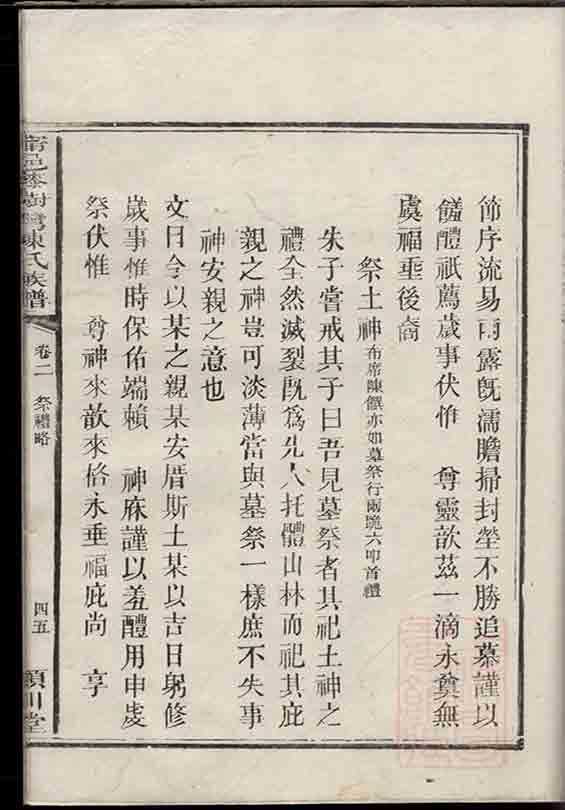 節序流易雨露旣濡瞻掃封塋不勝追慕謹以
饈醴祇薦歲事伏惟　尊靈歆茲一滴永奠無
虞福垂後裔
祭土神 布席陳饌亦如墓祭行兩跪六叩首禮
朱子嘗戒其子曰吾見墓祭者其祀土神之
禮全然滅裂旣爲先人托體山林而祀其庇
親之神豈可淡薄當與墓祭一樣庶不失事
神安親之意也
文曰今以某之親某安厝斯土某以吉日躬修
歲事惟時保佑端賴　神庥謹以羞醴用申虔
祭伏惟　尊神來歆來格永垂福庇尚　享
甯邑 樹灣陳氏族譜
卷二　祭禮略
四五
潁川堂